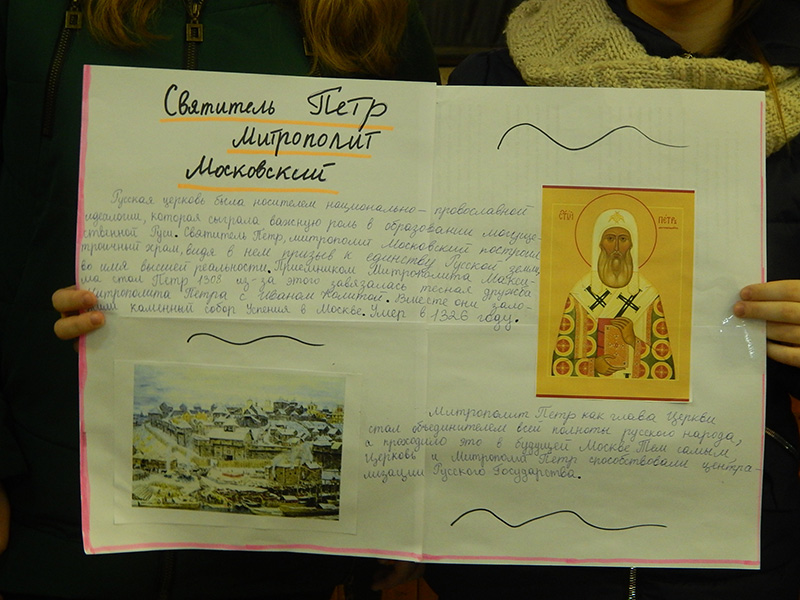 Святитель Петр
Митрополит
Московский
Русская церковь была носителем национально-православной
идеалогии, которая сыграла важную роль в образовании могуще-
ственной Руси. Святитель Петр, митрополит Московский построил
троичный храм, видя в нем призыв к единству Русской земли,
во имя высшей реальности. Приемником Митрополита Макси-
ма стал Петр 1308 из-за этого завязалась тесная дружба
Митрополита Петра с Иваном Калитой. Вместе они зало-
жили каменный собор Успения в Москве. Умер в 1326 году.
ПЕТРЪ
Митрополит Петр как глава Церкви
стал объединителем всей полноты русского народа,
а проходило это в будущей Москве Тем самым
Церковь и Митрополит Петр способствовали центра-
лизации Русского Государства.